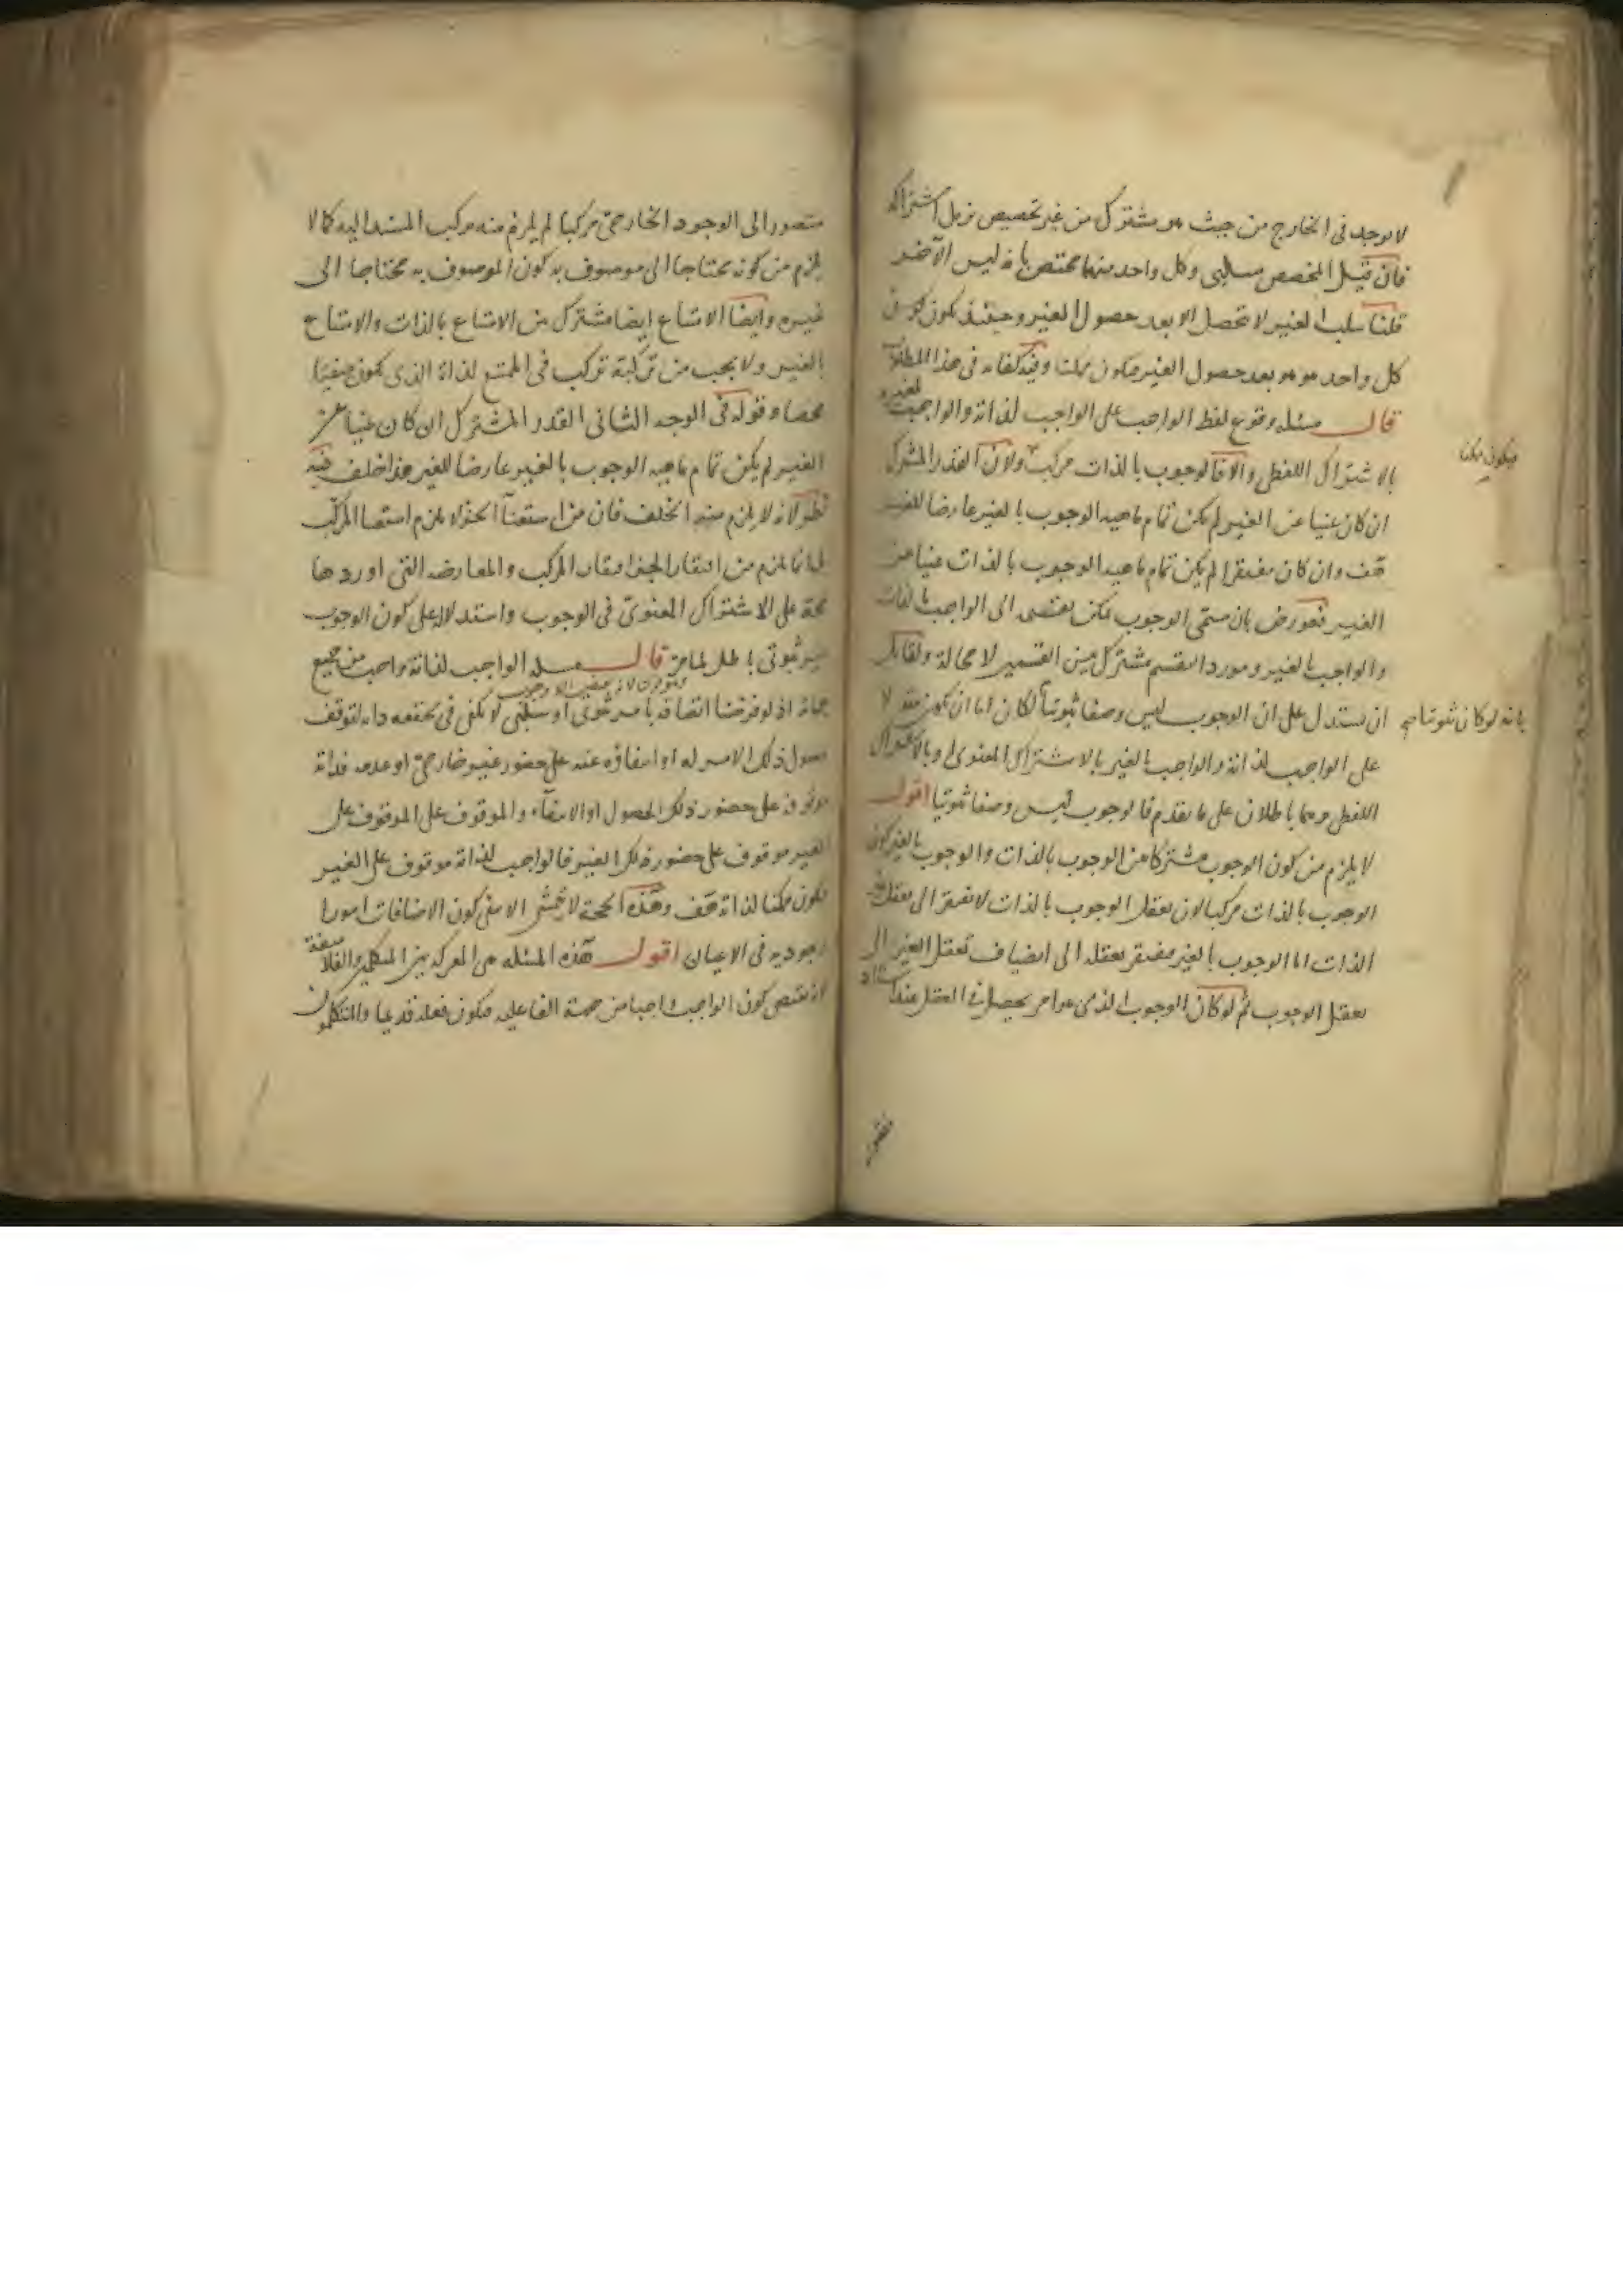 لا يوجد في الخارج من حيث هو مشترك من غير تخصيص يزيل اشتراكه
فان قيل المخصص سلبي وكل واحد منهما مختص بانه ليس الآخر
قلنا سلب الغير لا يحصل الا بعد حصول الغير وحينئذ يكون
كل واحد هو هو بعد حصول الغير فيكون ممكنا وفيه كفاية في هذا المطلوب
قال مسئلة وقوع لفظ الواجب على الواجب لذاته والواجب لغيره
بالاشتراك اللفظي والا فالوجوب بالذات مركب ولان القدر المشترك
ان كان غنيا عن الغير لم يكن تمام ماهية الوجوب بالغير عارضا للغير
هف وان كان مفتقرا لم يكن تمام ماهية الوجوب بالذات غنيا عن
الغير فعورض بان مسمى الوجوب يمكن تقسيمه الى الواجب بالذات
والواجب بالغير ومورد التقسيم مشترك بين القسمين لا محالة ولقائل
ان يستدل على ان الوجوب ليس وصفا ثبوتيا لكان اما ان يكون مقولا
على الواجب لذاته والواجب بالغير بالاشتراك المعنوي او بالاشتراك
اللفظي وهما باطلان على ما تقدم فالوجوب ليس وصفا ثبوتيا اقول
لا يلزم من كون الوجوب مشتركا من الوجوب بالذات والوجوب بالغير كون
الوجوب بالذات مركبا لان تعقل الوجوب بالذات لا يفتقر الى تعقل غير
الذات اما الوجوب بالغير مفتقر تعقله الى انضياف تعقل الغير الى
تعقل الوجوب ثم لو كان الوجوب الذي هو امر يحصل في العقل عند استناد
فيكون ممكنا
بانه لو كان ثبوتيا صح
متصور الى الوجود الخارجي مركبا لم يلزم منه تركب المسند اليه كما لا
يلزم من كونه محتاجا الى موصوف به كون الموصوف به محتاجا الى
غيره وايضا الامتناع ايضا مشترك من الامتناع بالذات والامتناع
بالغير ولا يجب من تركبه تركب في الممتنع لذاته الذي يكون منفيا
محضا وقوله في الوجه الثاني القدر المشترك ان كان غنيا عن
الغير لم يكن تمام ماهية الوجوب بالغير عارضا للغير هذا خلف فيه
نظر لانه لا يلزم منه الخلف فان من استغناء الجزء لا يلزم استغناء المركب
انما يلزم من افتقار الجزء افتقار المركب والمعارضة التي اوردها
حجة على الاشتراك المعنوي في الوجوب واستدلاله على كون الوجوب
غير ثبوتي باطل لما مر قال مسئلة الواجب لذاته واجب من جميع
جهاته اذ لو فرضنا اتصافه بامر ثبوتي او سلبي لا يكفي في تحققه ذاته لتوقف
حصول ذلك الامر له او انتفاؤه عنه على حضور غير خارجي او عدمه فذاته
موقوف على حضور ذلك الحصول او الانتفاء والموقوف على الموقوف على
الغير موقوف على حضور ذلك الغير فالواجب لذاته موقوف على الغير
فيكون ممكنا لذاته هف وهذه الحجة لا تتمشى الا مع كون الاضافات امورا
وجودية في الاعيان اقول هذه المسئلة هي المعركة بين المتكلمين والفلاسفة
اذ تقتضي كون الواجب واجبا من جهة الفاعلية فيكون فعله قديما والمتكلمون